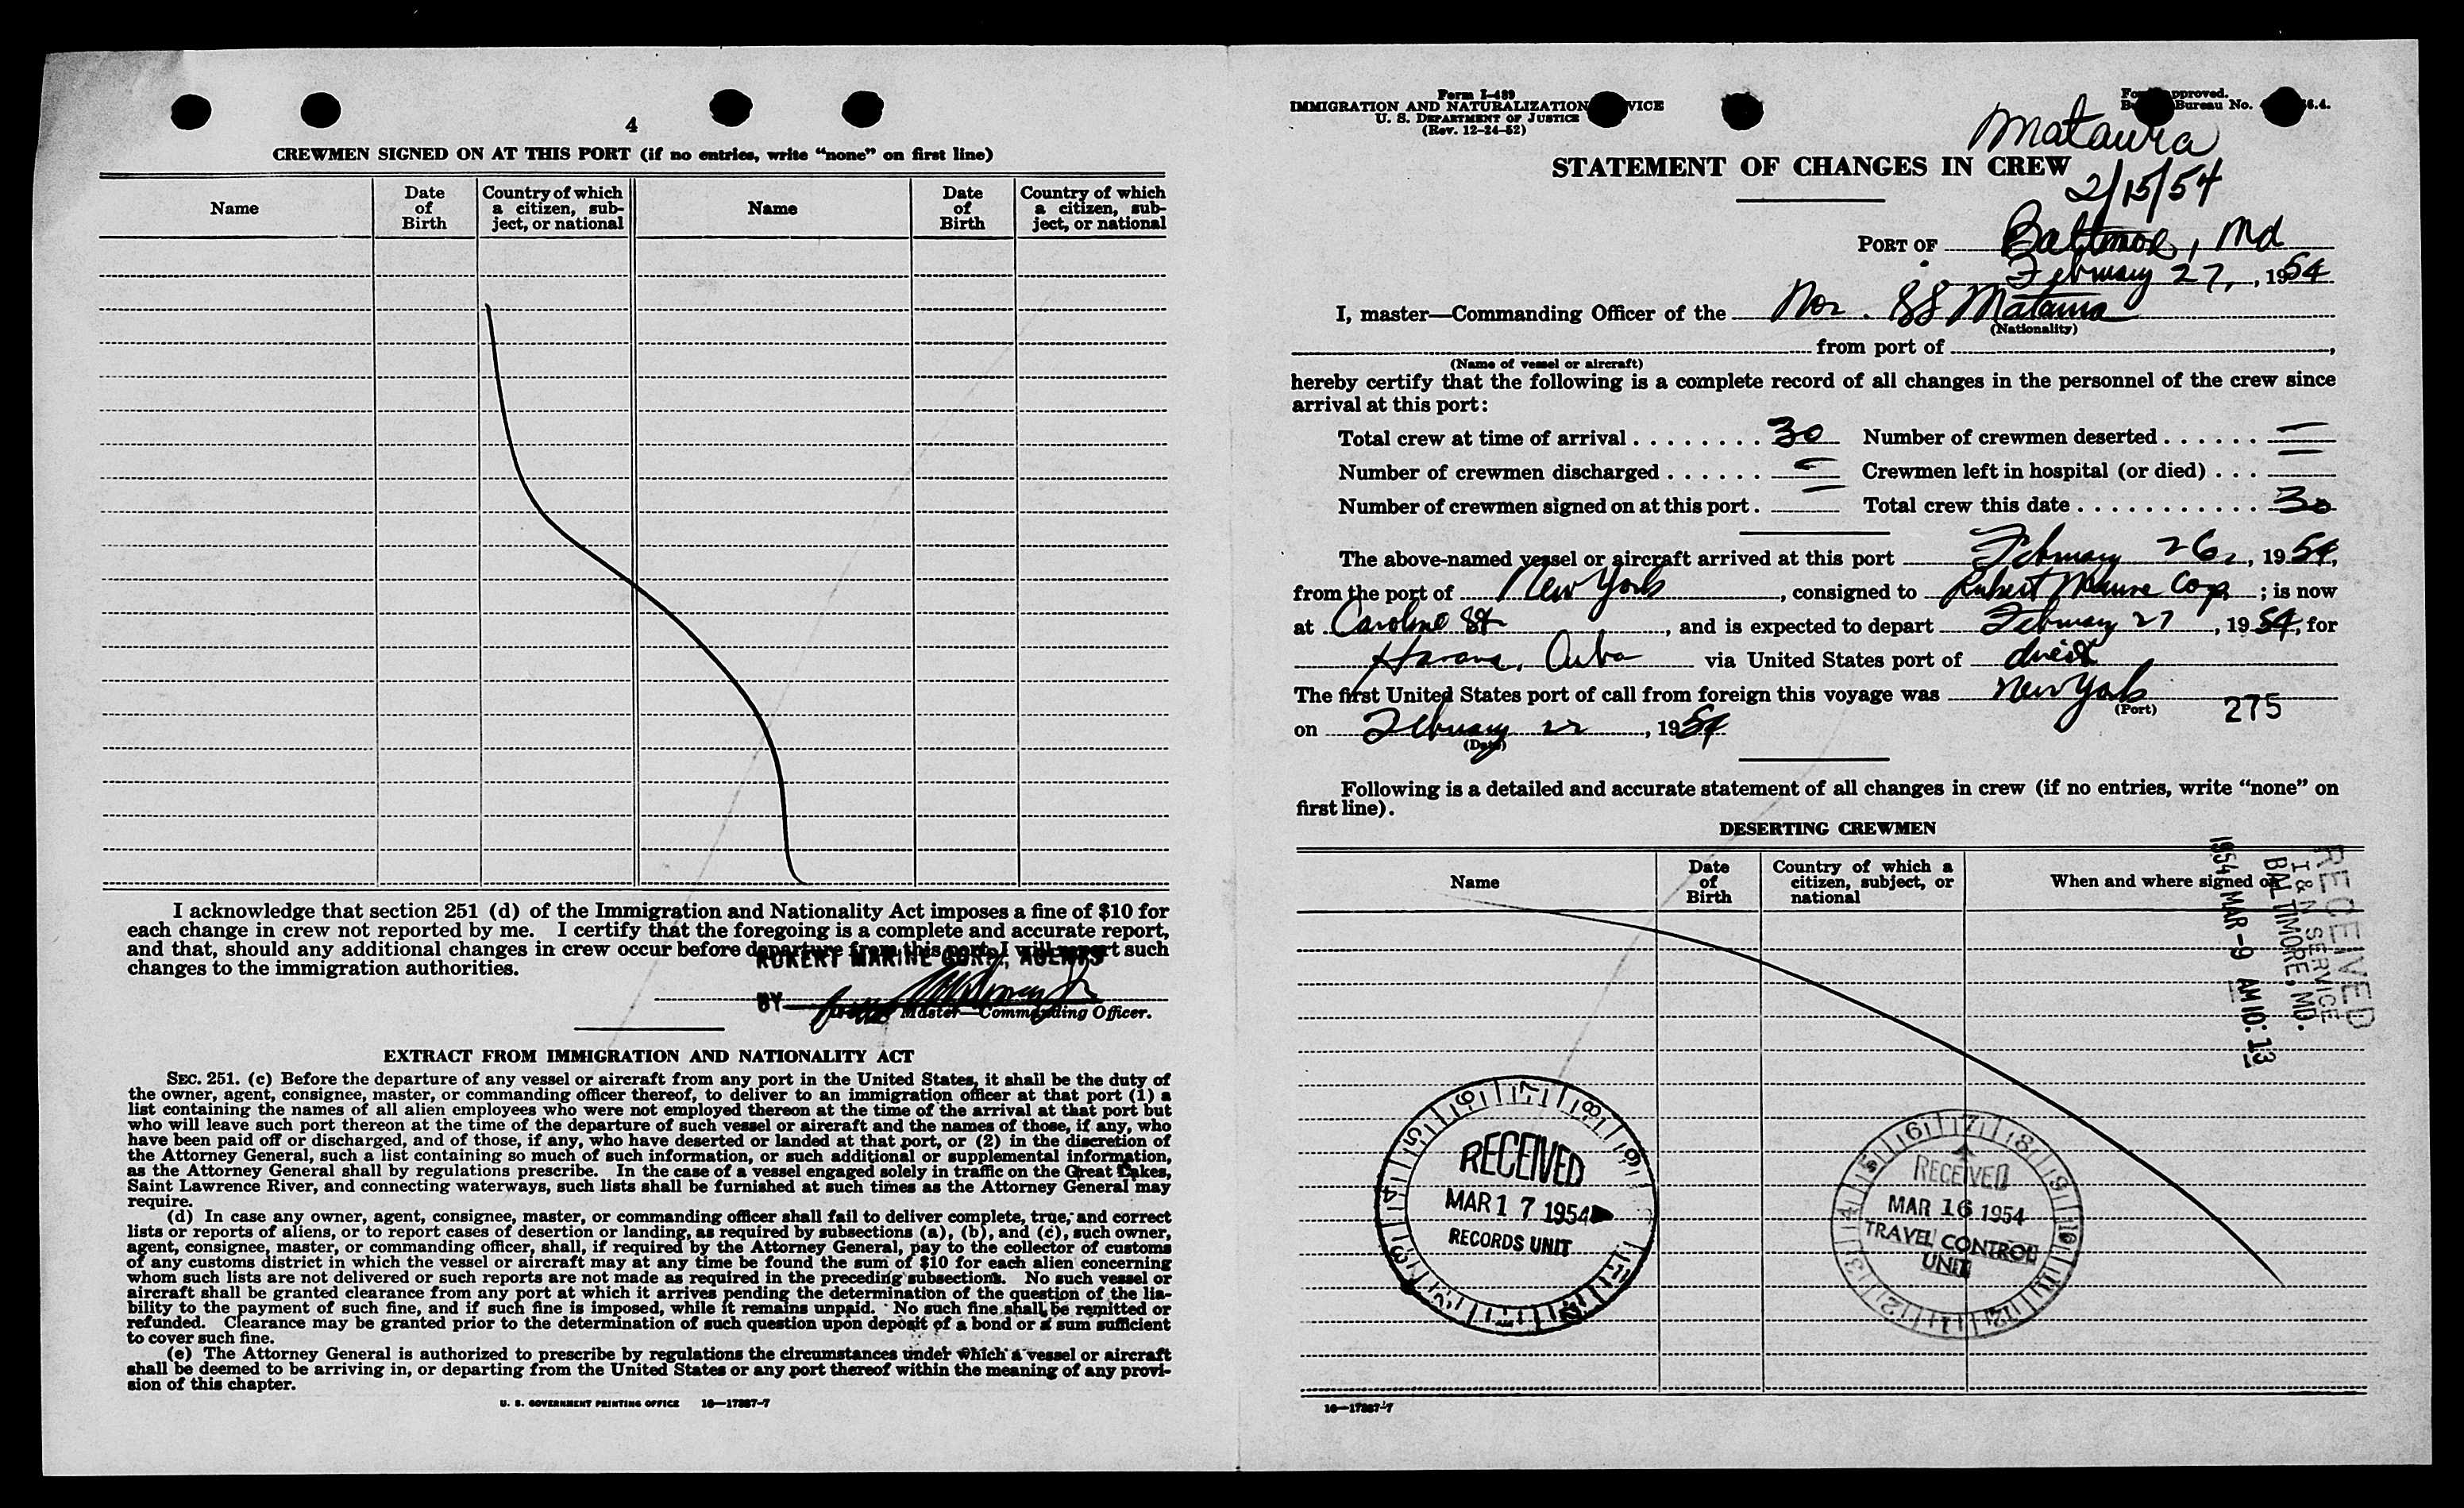 4
CREWMEN SIGNED ON AT THIS PORT (if no entries, write “none” on first line)
Name
Date of Birth
Country of which a citizen, sub-ject, or national
Name
Date of Birth
Country of which a citizen, sub-ject, or national
I acknowledge that section 251 (d) of the Immigration and Nationality Act imposes a fine of $10 for
each change in crew not reported by me. I certify that the foregoing is a complete and accurate report,
and that, should any additional changes in crew occur before departure from this port, I will report such
changes to the immigration authorities.
RUKERT MARINE CORP., AGENTS
BY
Master—Commanding Officer.
EXTRACT FROM IMMIGRATION AND NATIONALITY ACT
SEC. 251. (c) Before the departure of any vessel or aircraft from any port in the United States, it shall be the duty of
the owner, agent, consignee, master, or commanding officer thereof, to deliver to an immigration officer at that port (1) a
list containing the names of all alien employees who were not employed thereon at the time of the arrival at that port but
who will leave such port thereon at the time of the departure of such vessel or aircraft and the names of those, if any, who
have been paid off or discharged, and of those, if any, who have deserted or landed at that port, or (2) in the discretion of
the Attorney General, such a list containing so much of such information, or such additional or supplemental information,
as the Attorney General shall by regulations prescribe. In the case of a vessel engaged solely in traffic on the Great Lakes,
Saint Lawrence River, and connecting waterways, such lists shall be furnished at such times as the Attorney General may
require.
(d) In case any owner, agent, consignee, master, or commanding officer shall fail to deliver complete, true, and correct
lists or reports of aliens, or to report cases of desertion or landing, as required by subsections (a), (b), and (c), such owner,
agent, consignee, master, or commanding officer, shall, if required by the Attorney General, pay to the collector of customs
of any customs district in which the vessel or aircraft may at any time be found the sum of $10 for each alien concerning
whom such lists are not delivered or such reports are not made as required in the preceding subsections. No such vessel or
aircraft shall be granted clearance from any port at which it arrives pending the determination of the question of the lia-
bility to the payment of such fine, and if such fine is imposed, while it remains unpaid. No such fine shall be remitted or
refunded. Clearance may be granted prior to the determination of such question upon deposit of a bond or a sum sufficient
to cover such fine.
(e) The Attorney General is authorized to prescribe by regulations the circumstances under which a vessel or aircraft
shall be deemed to be arriving in, or departing from the United States or any port thereof within the meaning of any provi-
sion of this chapter.
U. S. GOVERNMENT PRINTING OFFICE 16—17887-7
Form I-489
IMMIGRATION AND NATURALIZATION VICE
U. S. DEPARTMENT OF JUSTICE
(Rev. 12-24-52)
Fo pproved.
B Bureau No. 6.4.
Mataura
STATEMENT OF CHANGES IN CREW
2/15/54
PORT OF Baltimore, Md
February 27, , 1954
I, master—Commanding Officer of the Nor. SS Mataura
(Nationality)
from port of ,
(Name of vessel or aircraft)
hereby certify that the following is a complete record of all changes in the personnel of the crew since
arrival at this port:
Total crew at time of arrival 30 Number of crewmen deserted —
Number of crewmen discharged — Crewmen left in hospital (or died) —
Number of crewmen signed on at this port — Total crew this date 30
The above-named vessel or aircraft arrived at this port February 26, , 1954,
from the port of New York , consigned to Rukert Marine Corp ; is now
at Caroline St , and is expected to depart February 27 , 1954, for
Havana, Cuba via United States port of direct
The first United States port of call from foreign this voyage was New York
(Port)
275
on February 22 , 1954
(Date)
Following is a detailed and accurate statement of all changes in crew (if no entries, write “none” on
first line).
DESERTING CREWMEN
Name
Date of Birth
Country of which a citizen, subject, or national
When and where signed on
RECEIVED
I & N SERVICE
BALTIMORE, MD.
1954 MAR -9 AM 10: 13
RECEIVED
MAR 17 1954
RECORDS UNIT
RECEIVED
MAR 16 1954
TRAVEL CONTROL
UNIT
16—17887-7